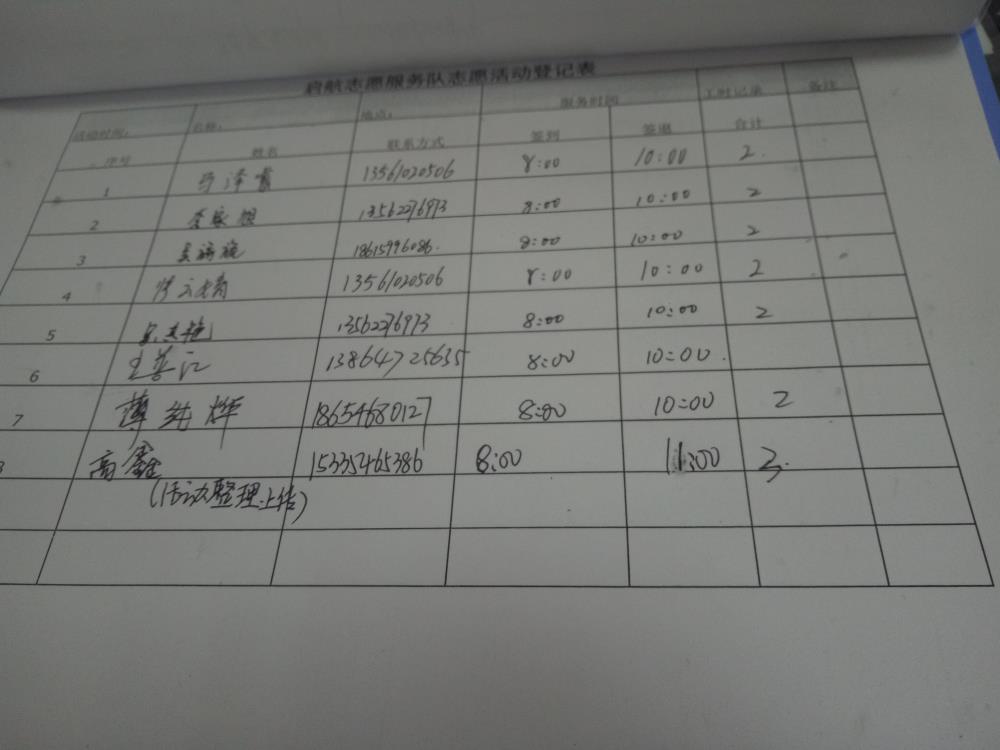 启航志愿服务队志愿活动登记表
活动时间： 名称： 地点： 服务时间 工时记录 备注
序号 姓名 联系方式 签到 签退 合计
1 13561020506 8:00 10:00 2
2 13562276973 8:00 10:00 2
3 18615996086 8:00 10:00 2
4 13561020506 8:00 10:00 2
5 13562276973 8:00 10:00 2
6 王善江 13864725635 8:00 10:00
7 薄纯辉 18654680127 8:00 10:00 2
高鑫 15335465386 8:00 11:00 3
(活动整理上传)